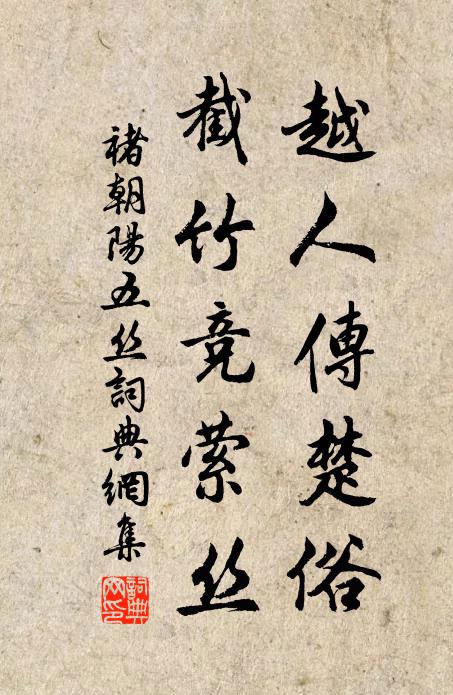 越人傳楚俗
截竹竞萦丝
褚朝陽五丝詞典網集
詞典網印